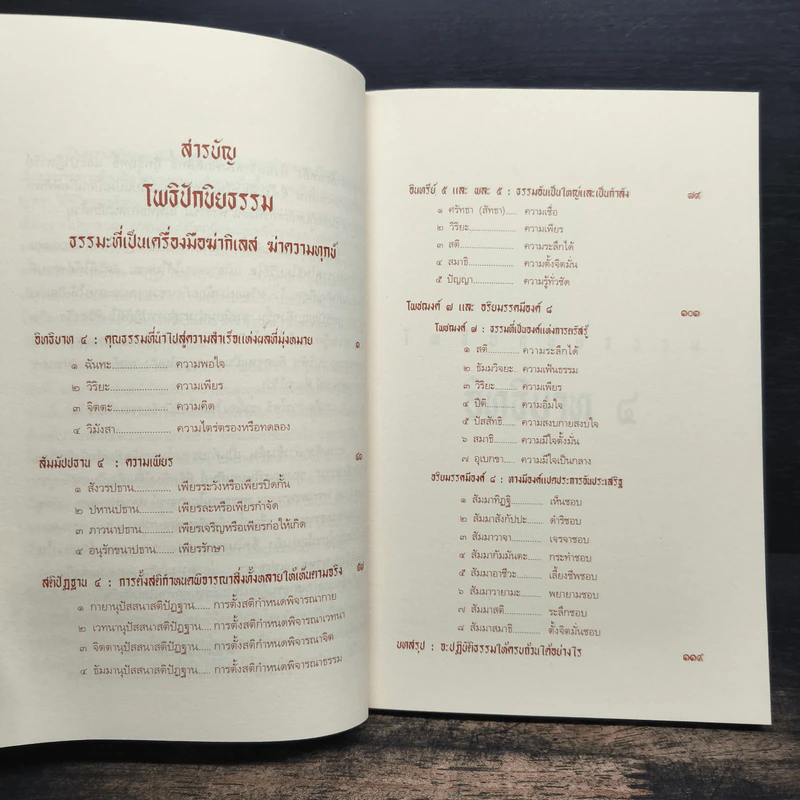 สารบัญ
โพธิปักขิยธรรม
ธรรมะที่เป็นเครื่องมือฆ่ากิเลส ฆ่าความทุกข์
อิทธิบาท ๔ : คุณธรรมที่นำไปสู่ความสำเร็จแห่งผลที่มุ่งหมาย ๑
๑ ฉันทะ ................ ความพอใจ
๒ วิริยะ ................ ความเพียร
๓ จิตตะ ................ ความคิด
๔ วิมังสา ................ ความไตร่ตรองหรือทดลอง
สัมมัปปธาน ๔ : ความเพียร
๑ สังวรปธาน ............ เพียรระวังหรือเพียรปิดกั้น
๒ ปหานปธาน .......... เพียรละหรือเพียรกำจัด
๓ ภาวนาปธาน ......... เพียรเจริญหรือเพียรก่อให้เกิด
๔ อนุรักขนาปธาน ..... เพียรรักษา
สติปัฏฐาน ๔ : การตั้งสติกำหนดพิจารณาสิ่งทั้งหลายให้เห็นตามจริง
๑ กายานุปัสสนาสติปัฏฐาน ...... การตั้งสติกำหนดพิจารณากาย
๒ เวทนานุปัสสนาสติปัฏฐาน .... การตั้งสติกำหนดพิจารณาเวทนา
๓ จิตตานุปัสสนาสติปัฏฐาน ..... การตั้งสติกำหนดพิจารณาจิต
๔ ธัมมานุปัสสนาสติปัฏฐาน ..... การตั้งสติกำหนดพิจารณาธรรม
อินทรีย์ ๕ และ พละ ๕ : ธรรมอันเป็นใหญ่และเป็นกำลัง ๘๙
๑ ศรัทธา (สัทธา)..... ความเชื่อ
๒ วิริยะ .................. ความเพียร
๓ สติ ..................... ความระลึกได้
๔ สมาธิ .................. ความตั้งจิตมั่น
๕ ปัญญา ................ ความรู้ทั่วชัด
โพชฌงค์ ๗ และ อริยมรรคมีองค์ ๘ ๑๐๑
โพชฌงค์ ๗ : ธรรมที่เป็นองค์แห่งการตรัสรู้
๑ สติ .............. ความระลึกได้
๒ ธัมมวิจยะ ...... ความเฟ้นธรรม
๓ วิริยะ ............ ความเพียร
๔ ปีติ .............. ความอิ่มใจ
๕ ปัสสัทธิ ........ ความสงบกายสงบใจ
๖ สมาธิ ........... ความมีใจตั้งมั่น
๗ อุเบกขา ........ ความมีใจเป็นกลาง
อริยมรรคมีองค์ ๘ : ทางมีองค์แปดประการอันประเสริฐ
๑ สัมมาทิฏฐิ ......... เห็นชอบ
๒ สัมมาสังกัปปะ ..... ดำริชอบ
๓ สัมมาวาจา ......... เจรจาชอบ
๔ สัมมากัมมันตะ .... กระทำชอบ
๕ สัมมาอาชีวะ ....... เลี้ยงชีพชอบ
๖ สัมมาวายามะ ...... พยายามชอบ
๗ สัมมาสติ ........... ระลึกชอบ
๘ สัมมาสมาธิ ........ ตั้งจิตมั่นชอบ
บทสรุป : จะปฏิบัติธรรมให้ครบถ้วนได้อย่างไร ๑๑๙